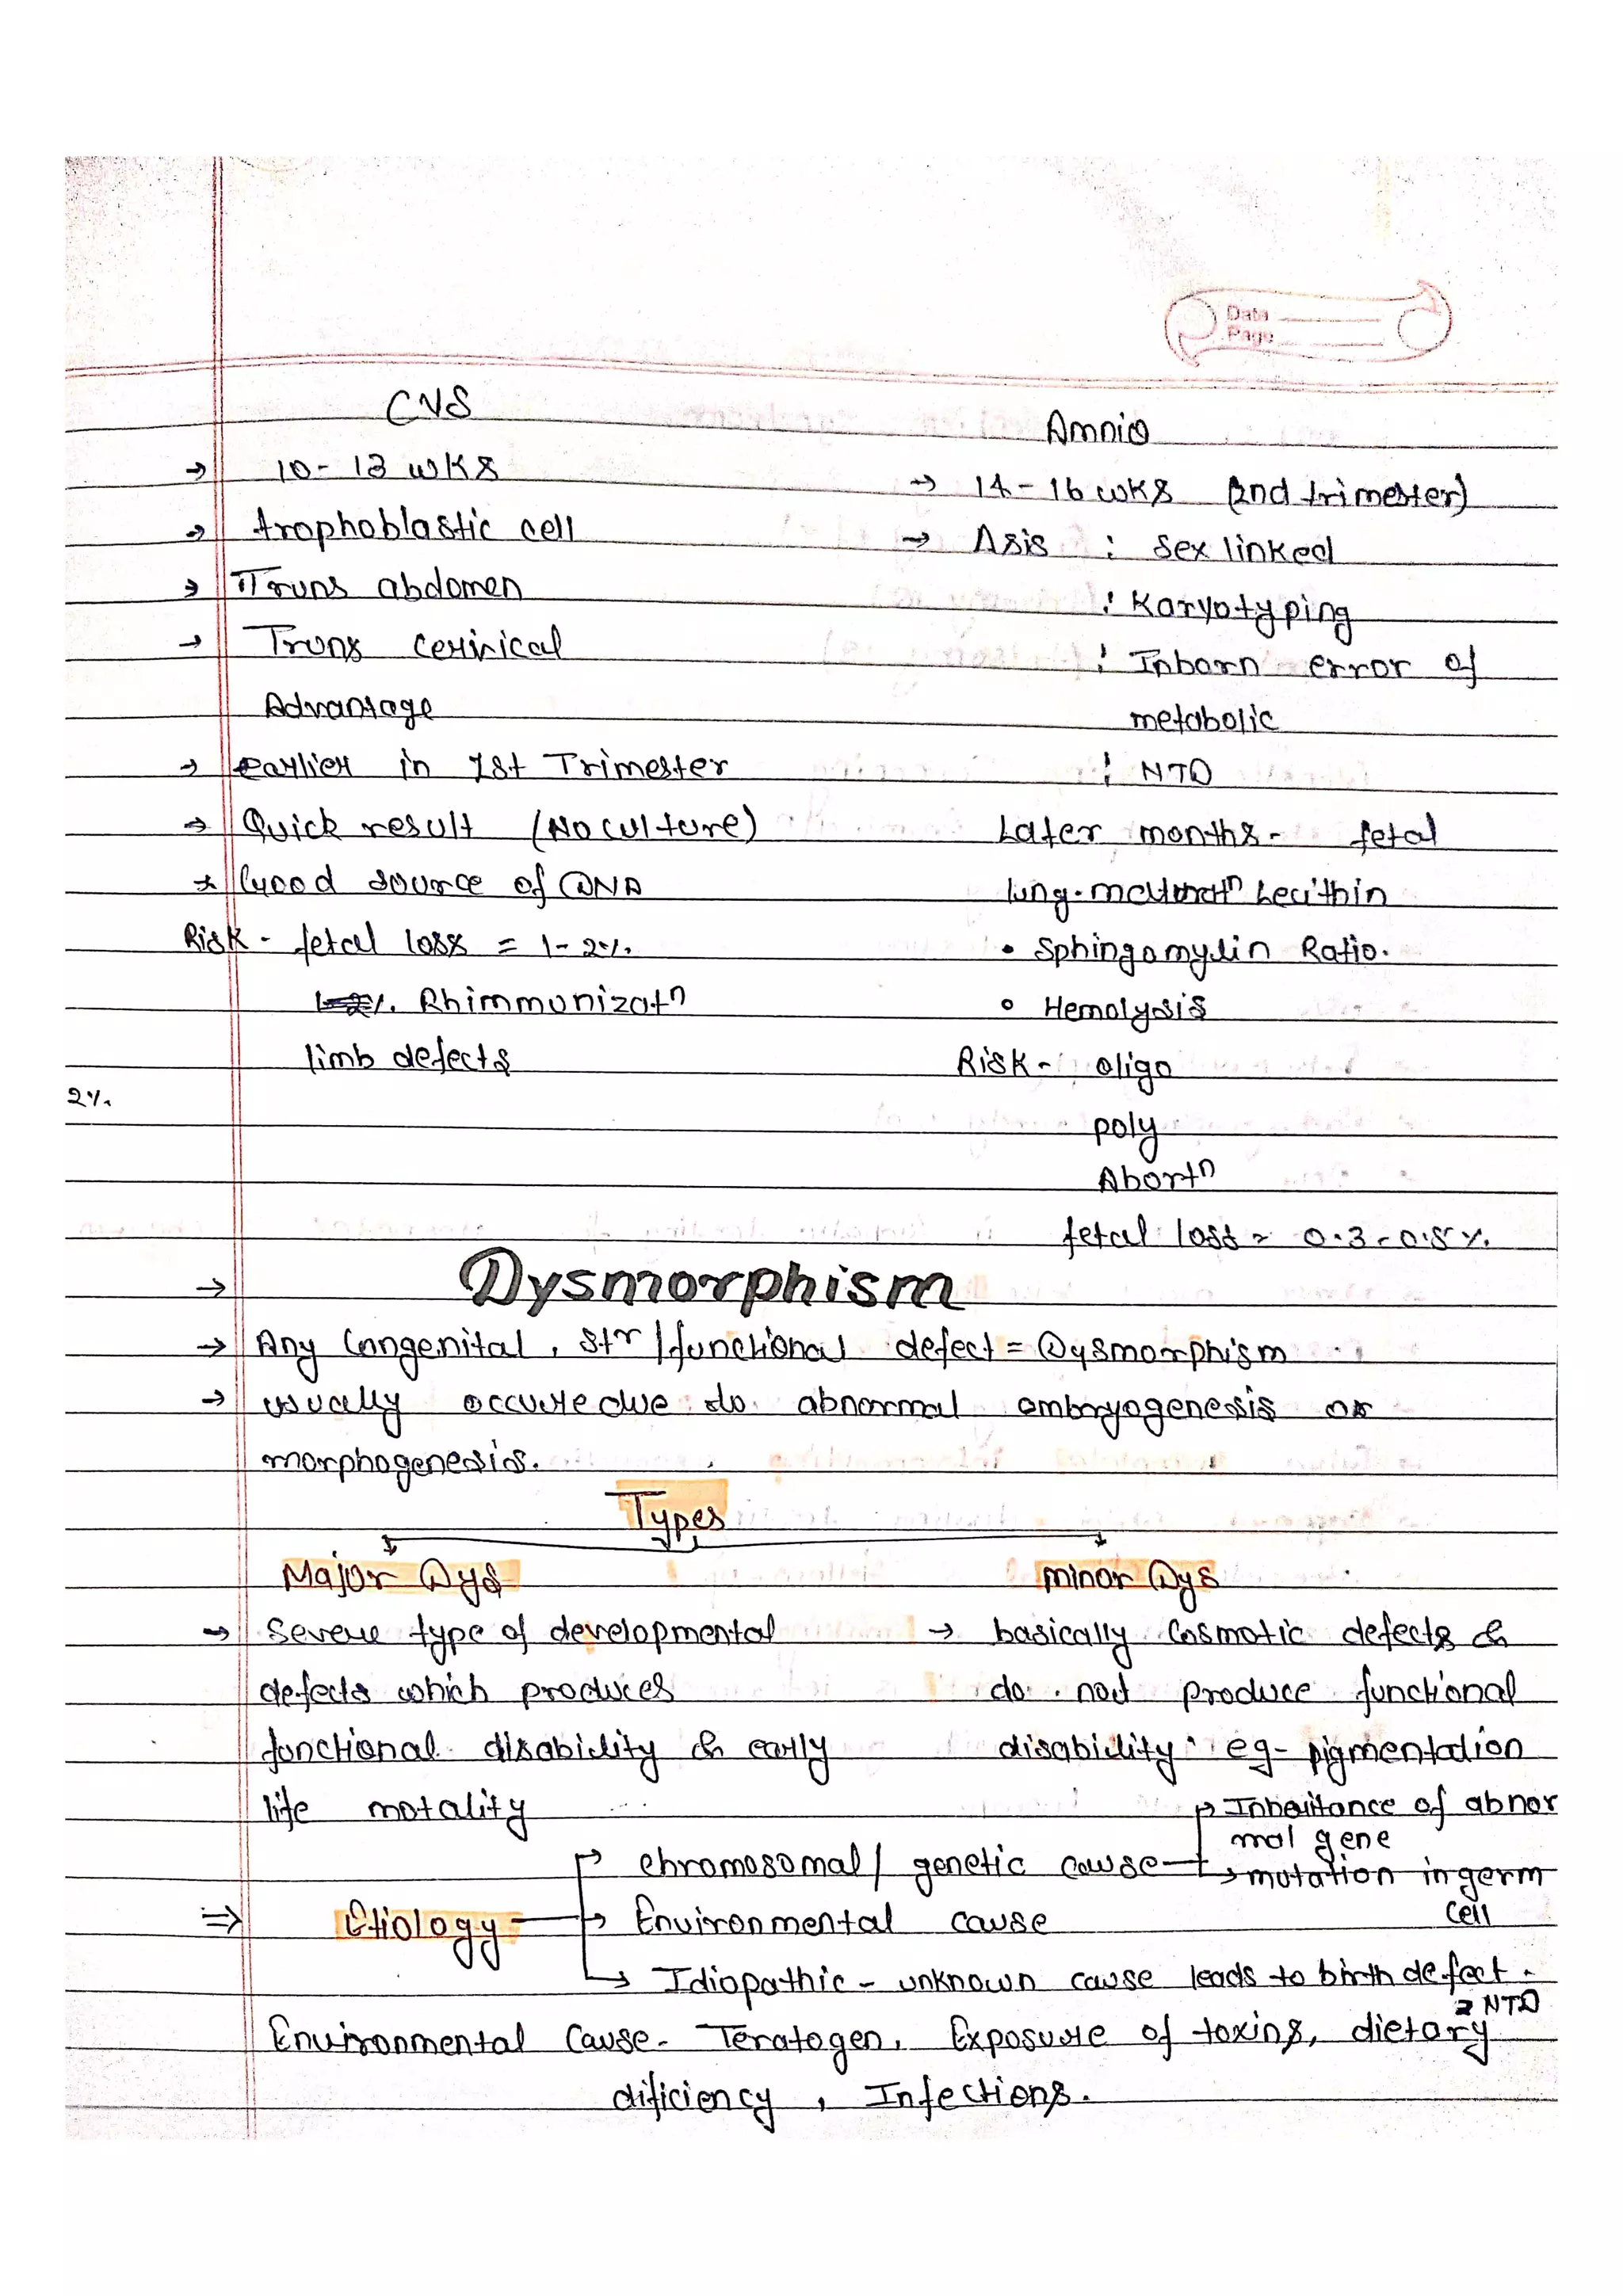 Data
Page
CVS
→ 10 - 13 wks
→ trophoblastic cell
→ Trans abdomen
→ Trans cervical
Advantage
→ earlier in 1st Trimester
→ Quick result (No culture)
* Good source of DNA
Risk - fetal loss = 1-2%.
Rhimmunizatn
limb defects
2%.
Amnio
→ 14 - 16 wks (2nd trimester)
→ Asis : Sex linked
: Karyotyping
: Inborn error of
metabolic
: NTD
Later months - fetal
lung. maturatn Lecithin
• Sphingomylin Ratio.
• Hemolysis
Risk - oligo
poly
Abortn
fetal loss = 0.3 - 0.5%.
→ Dysmorphism
→ Any Congenital, str / functional defect = Dysmorphism
→ usually occure due to abnormal embryogenesis or
morphogenesis.
Types
Major Dys
→ Severe type of developmental
defects which produces
functional disability & early
life motality
minor Dys
→ basically Cosmotic defects &
do not produce functional
disability eg- pigmentation
⇒ Etiology
→ chromosomal / genetic cause
→ Inheritance of abnor
mal gene
→ mutation in germ
cell
→ Environmental cause
→ Idiopathic - unknown cause leads to birth defect.
Environmental Cause - Teratogen, Exposure of toxins, dietary
NTD
dificiency, Infections.